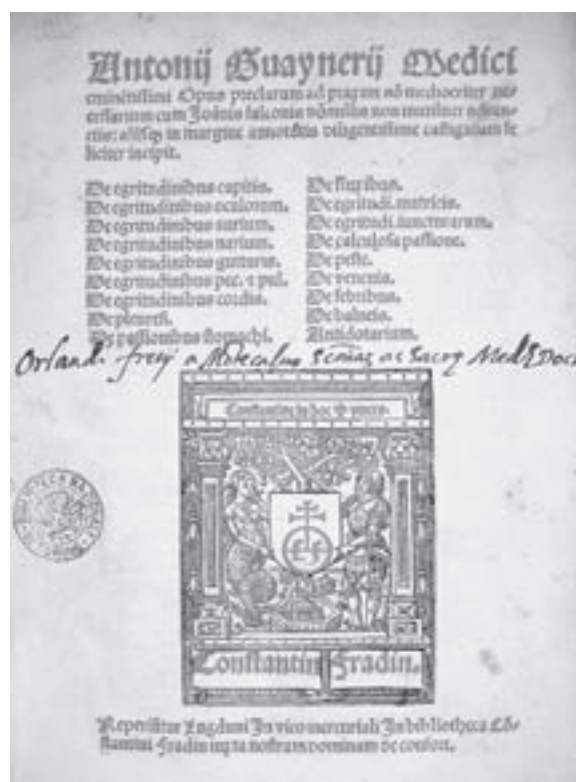 Antonij Guaynerij Medici
eminentissimi Opus preclarum ad praxim nõ mediocriter ne-
cessarium cum Joãnis falconis nõnullis non inutiliter adiunc-
tis: in margine diligentissime castigatum fe
liciter incipit.
De egritudinibus capitis.
De egritudinibus oculorum.
De egritudinibus aurium.
De egritudinibus narium.
De egritudinibus gutturis.
De egritudinibus pec. ⁊ pul.
De egritudinibus cordis.
De pleuresi.
De passionibus stomachi.
De fluxibus.
De egritudi. matricis.
De egritudi. iuncturarum.
De calculosa passione.
De peste.
De venenis.
De febribus.
De balneis.
Antidotarium.
Orlandi ac Med
Constantin
Constantin Fradin.
Reperiũtur Lugduni In vico mercuriali In bibliotheca Cõ-
stantini Fradin iuxta nostram dominam de confort.